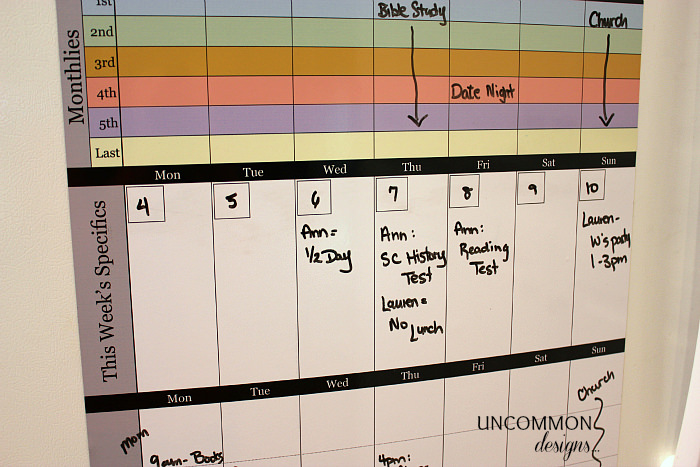 Monthlies
1st Bible Study Church
2nd
3rd
4th Date Night
5th
Last
Mon Tue Wed Thu Fri Sat Sun
This Week's Specifics
4 5 6 7 8 9 10
Ann=
1/2 Day
Ann:
SC History
Test
Lauren=
No Lunch
Ann:
Reading
Test
Lauren-
W's party
1-3pm
Mon Tue Wed Thu Fri Sat Sun
Church
Mom
9am- Boots
4pm:
UNCOMMON
designs